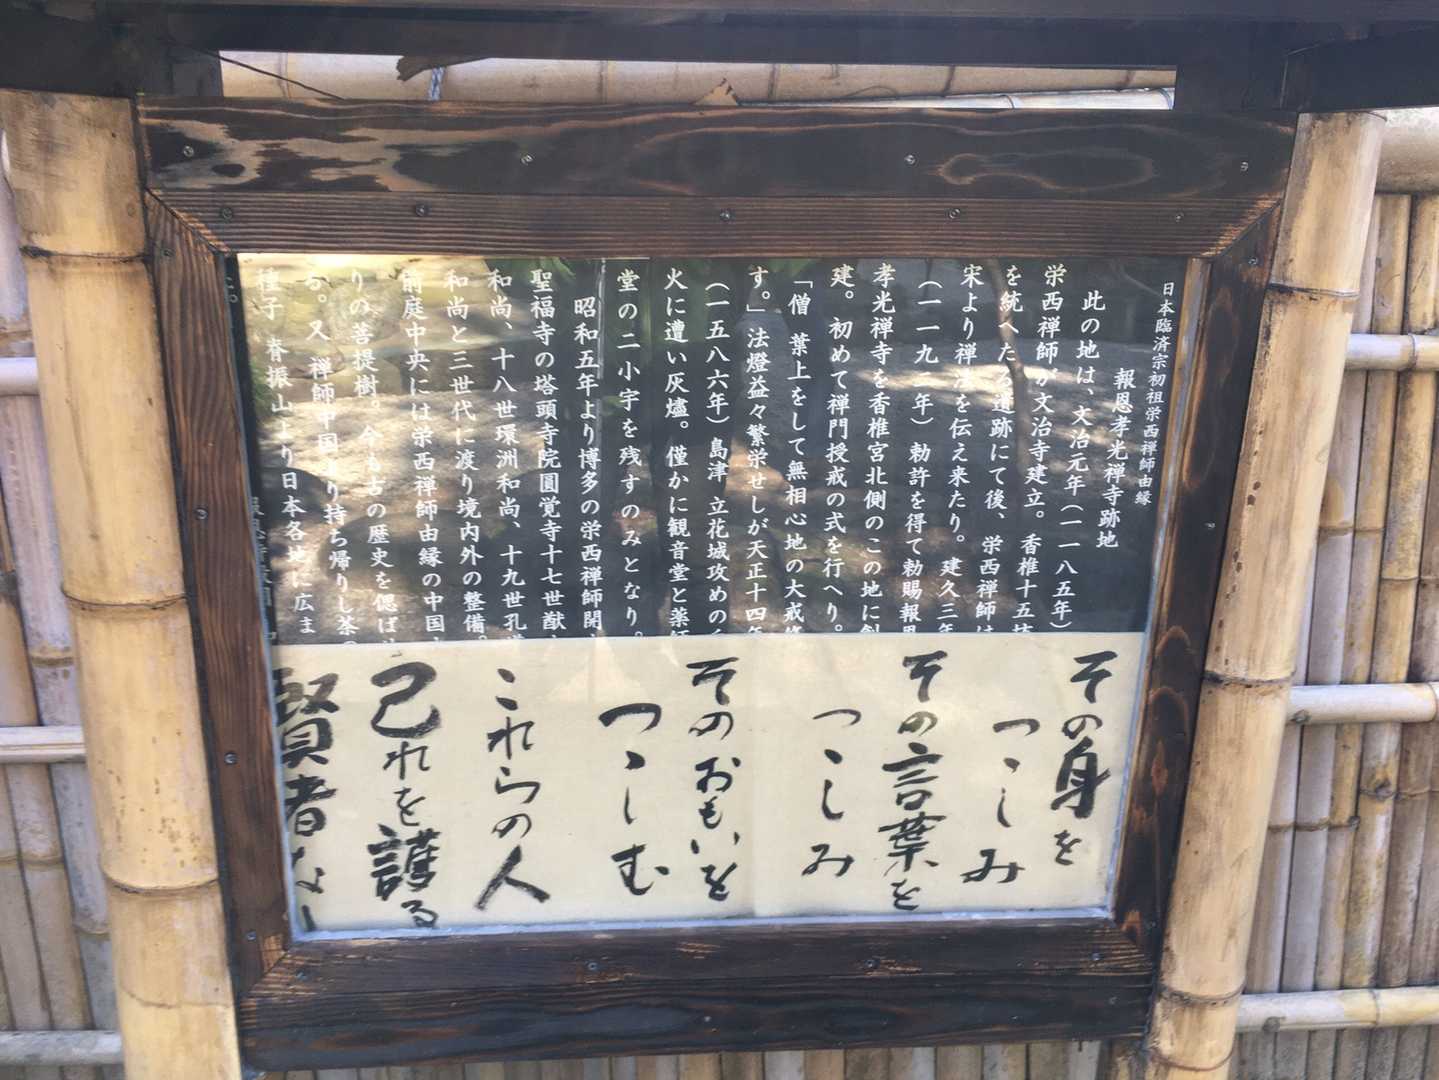 日本臨済宗初祖栄西禅師由縁
報恩孝光禅寺跡地
此の地は、文治元年(一一八五年)
栄西禅師が文治寺建立。香椎十五坊
を統へたる遺跡にて後、栄西禅師は
宋より禅法を伝え来たり。建久三年
(一一九二年)勅許を得て勅賜報恩
孝光禅寺を香椎宮北側のこの地に創
建。初めて禅門授戒の式を行へり。
「僧 葉上をして無相心地の大戒修
す。」法燈益々繁栄せしが天正十四年
(一五八六年)島津 立花城攻めの
火に遭い灰燼。僅かに観音堂と薬師
堂の二小宇を残すのみとなり。
昭和五年より博多の栄西禅師開
聖福寺の塔頭寺院圓覚寺十七世猷
和尚、十八世環洲和尚、十九世孔
和尚と三世代に渡り境内外の整備。
前庭中央には栄西禅師由縁の中国
りの菩提樹。今も古の歴史を偲ば
る。又 禅師中国より持ち帰りし茶の
種子 脊振山より日本各地に広ま
た。
その身を
つゝしみ
その言葉を
つゝしみ
そのおもいを
つゝしむ
これらの人
己れを護る
賢者なり